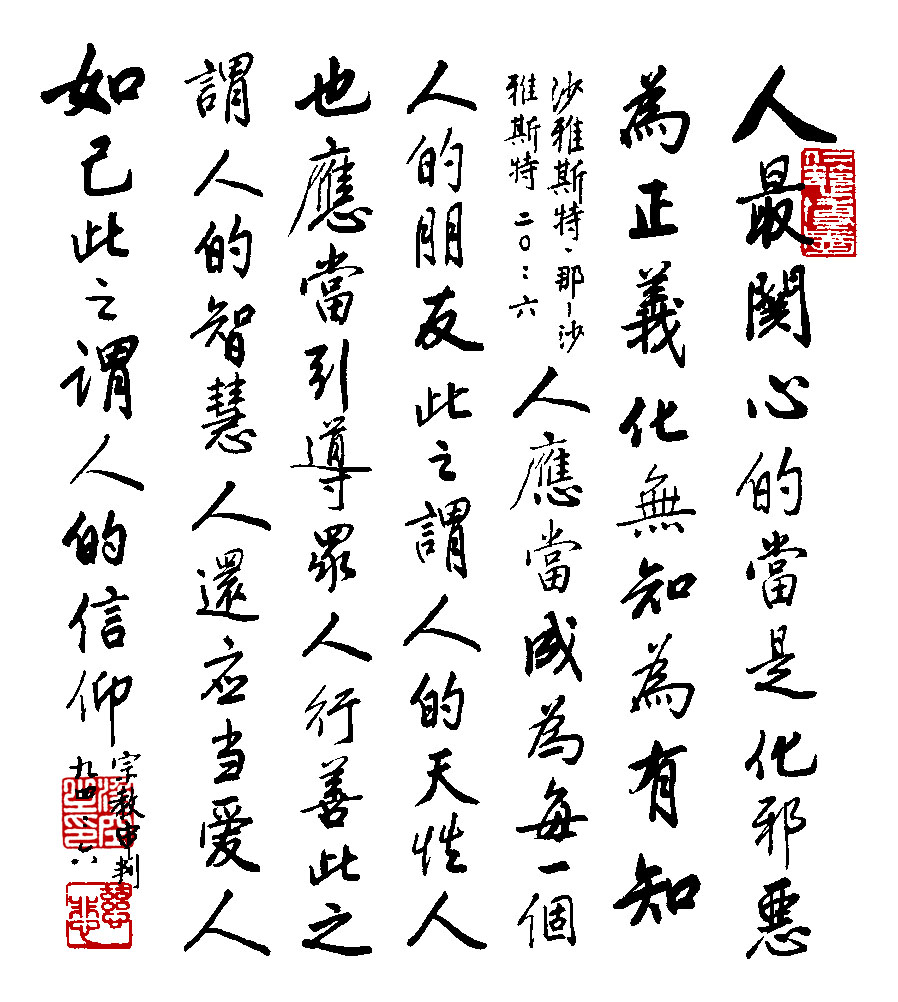 人最関心的當是化邪惡
為正義化無知為有知
沙雅斯特、那—沙
雅斯特 二〇：六
人應當成為每一個
人的朋友此之謂人的天性人
也應當引導眾人行善此之
謂人的智慧人還应当爱人
如己此之謂人的信仰
宗教申判
九四：六
慈悲